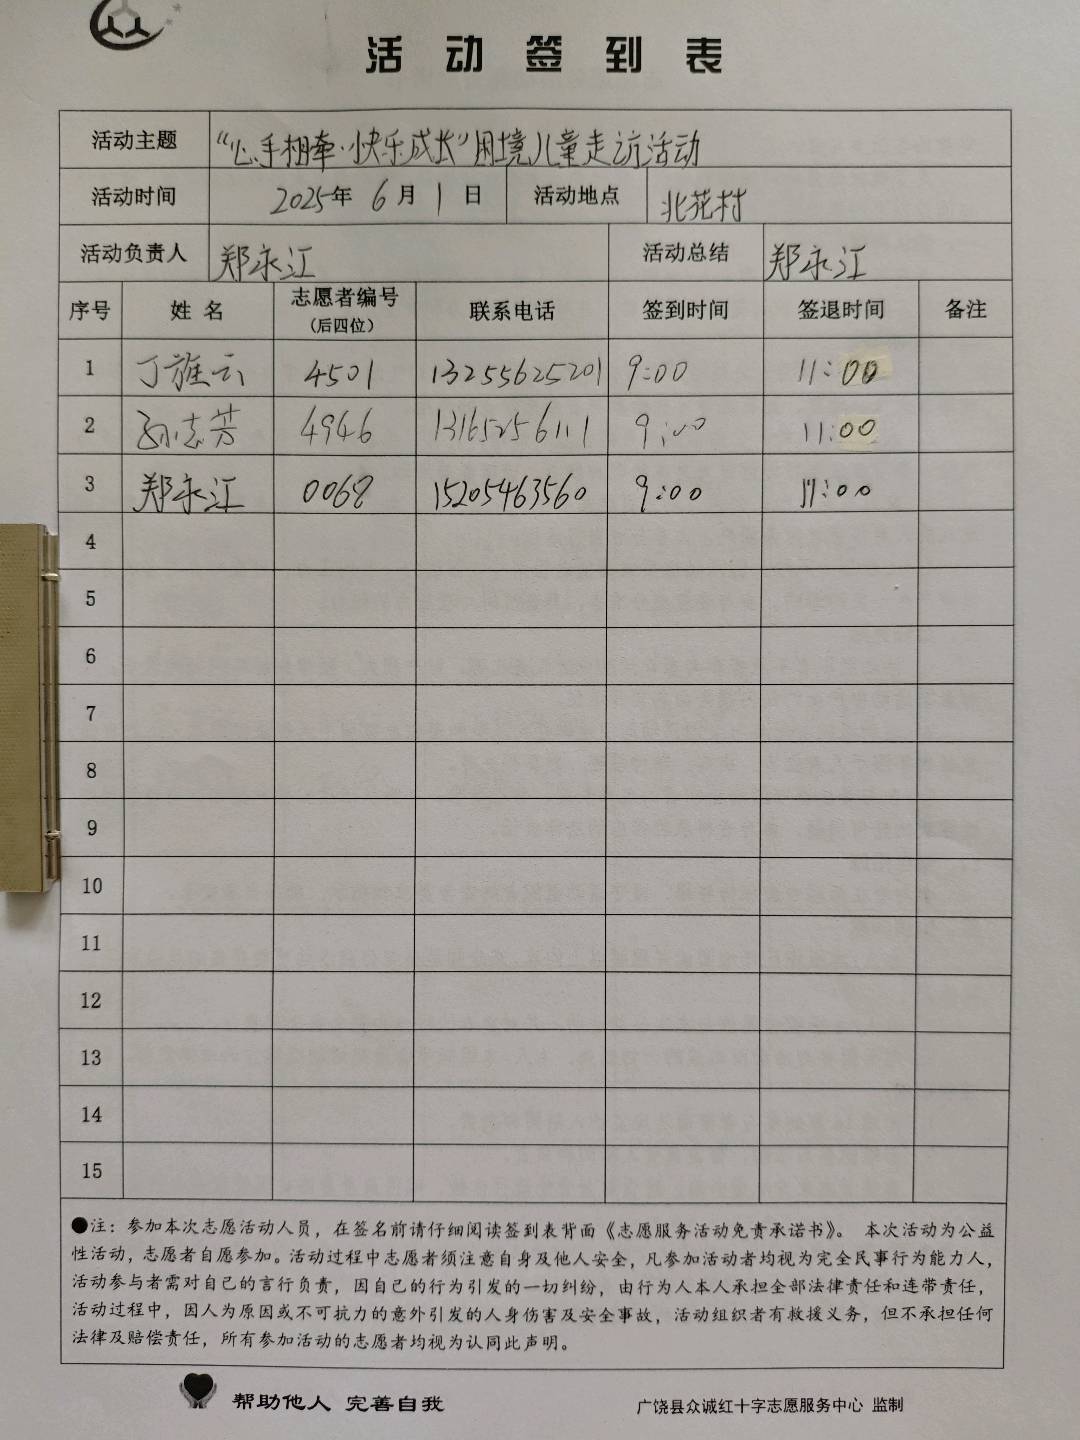 活动签到表
活动主题 “心手相牵·快乐成长”困境儿童走访活动
活动时间 2025年 6月 1日 活动地点 北花村
活动负责人 郑永江 活动总结 郑永江
序号 姓名 志愿者编号（后四位） 联系电话 签到时间 签退时间 备注
1 丁旌云 4501 13255625201 9:00 11:00
2 孙志芳 4946 13165256111 9:00 11:00
3 郑永江 0068 15205463560 9:00 11:00
4
5
6
7
8
9
10
11
12
13
14
15
●注：参加本次志愿活动人员，在签名前请仔细阅读签到表背面《志愿服务活动免责承诺书》。 本次活动为公益
性活动，志愿者自愿参加。活动过程中志愿者须注意自身及他人安全，凡参加活动者均视为完全民事行为能力人，
活动参与者需对自己的言行负责，因自己的行为引发的一切纠纷，由行为人本人承担全部法律责任和连带责任，
活动过程中，因人为原因或不可抗力的意外引发的人身伤害及安全事故，活动组织者有救援义务，但不承担任何
法律及赔偿责任，所有参加活动的志愿者均视为认同此声明。
帮助他人 完善自我
广饶县众诚红十字志愿服务中心 监制